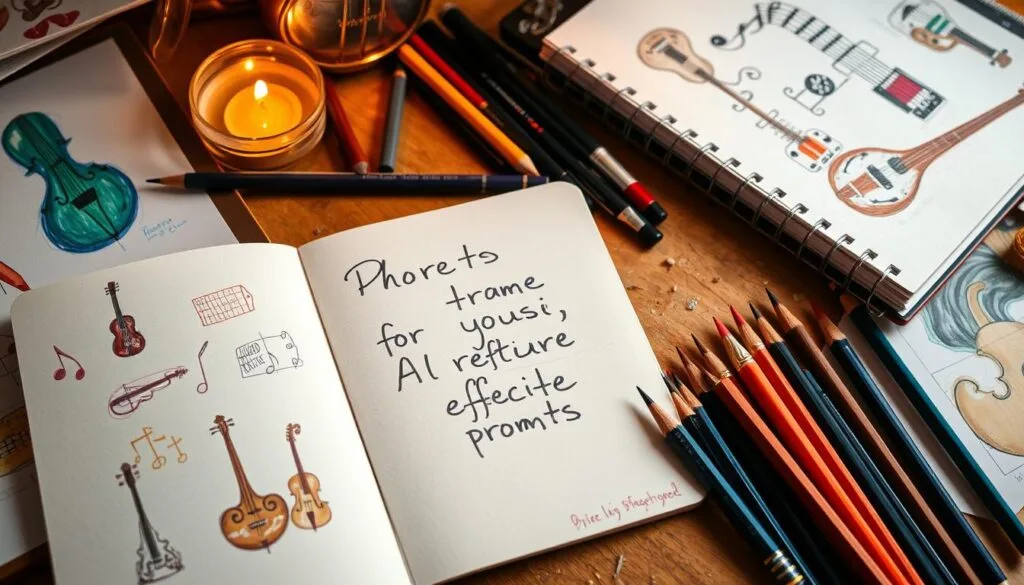 Phorets
trame
for yousi,
AI refture
effecite
promts